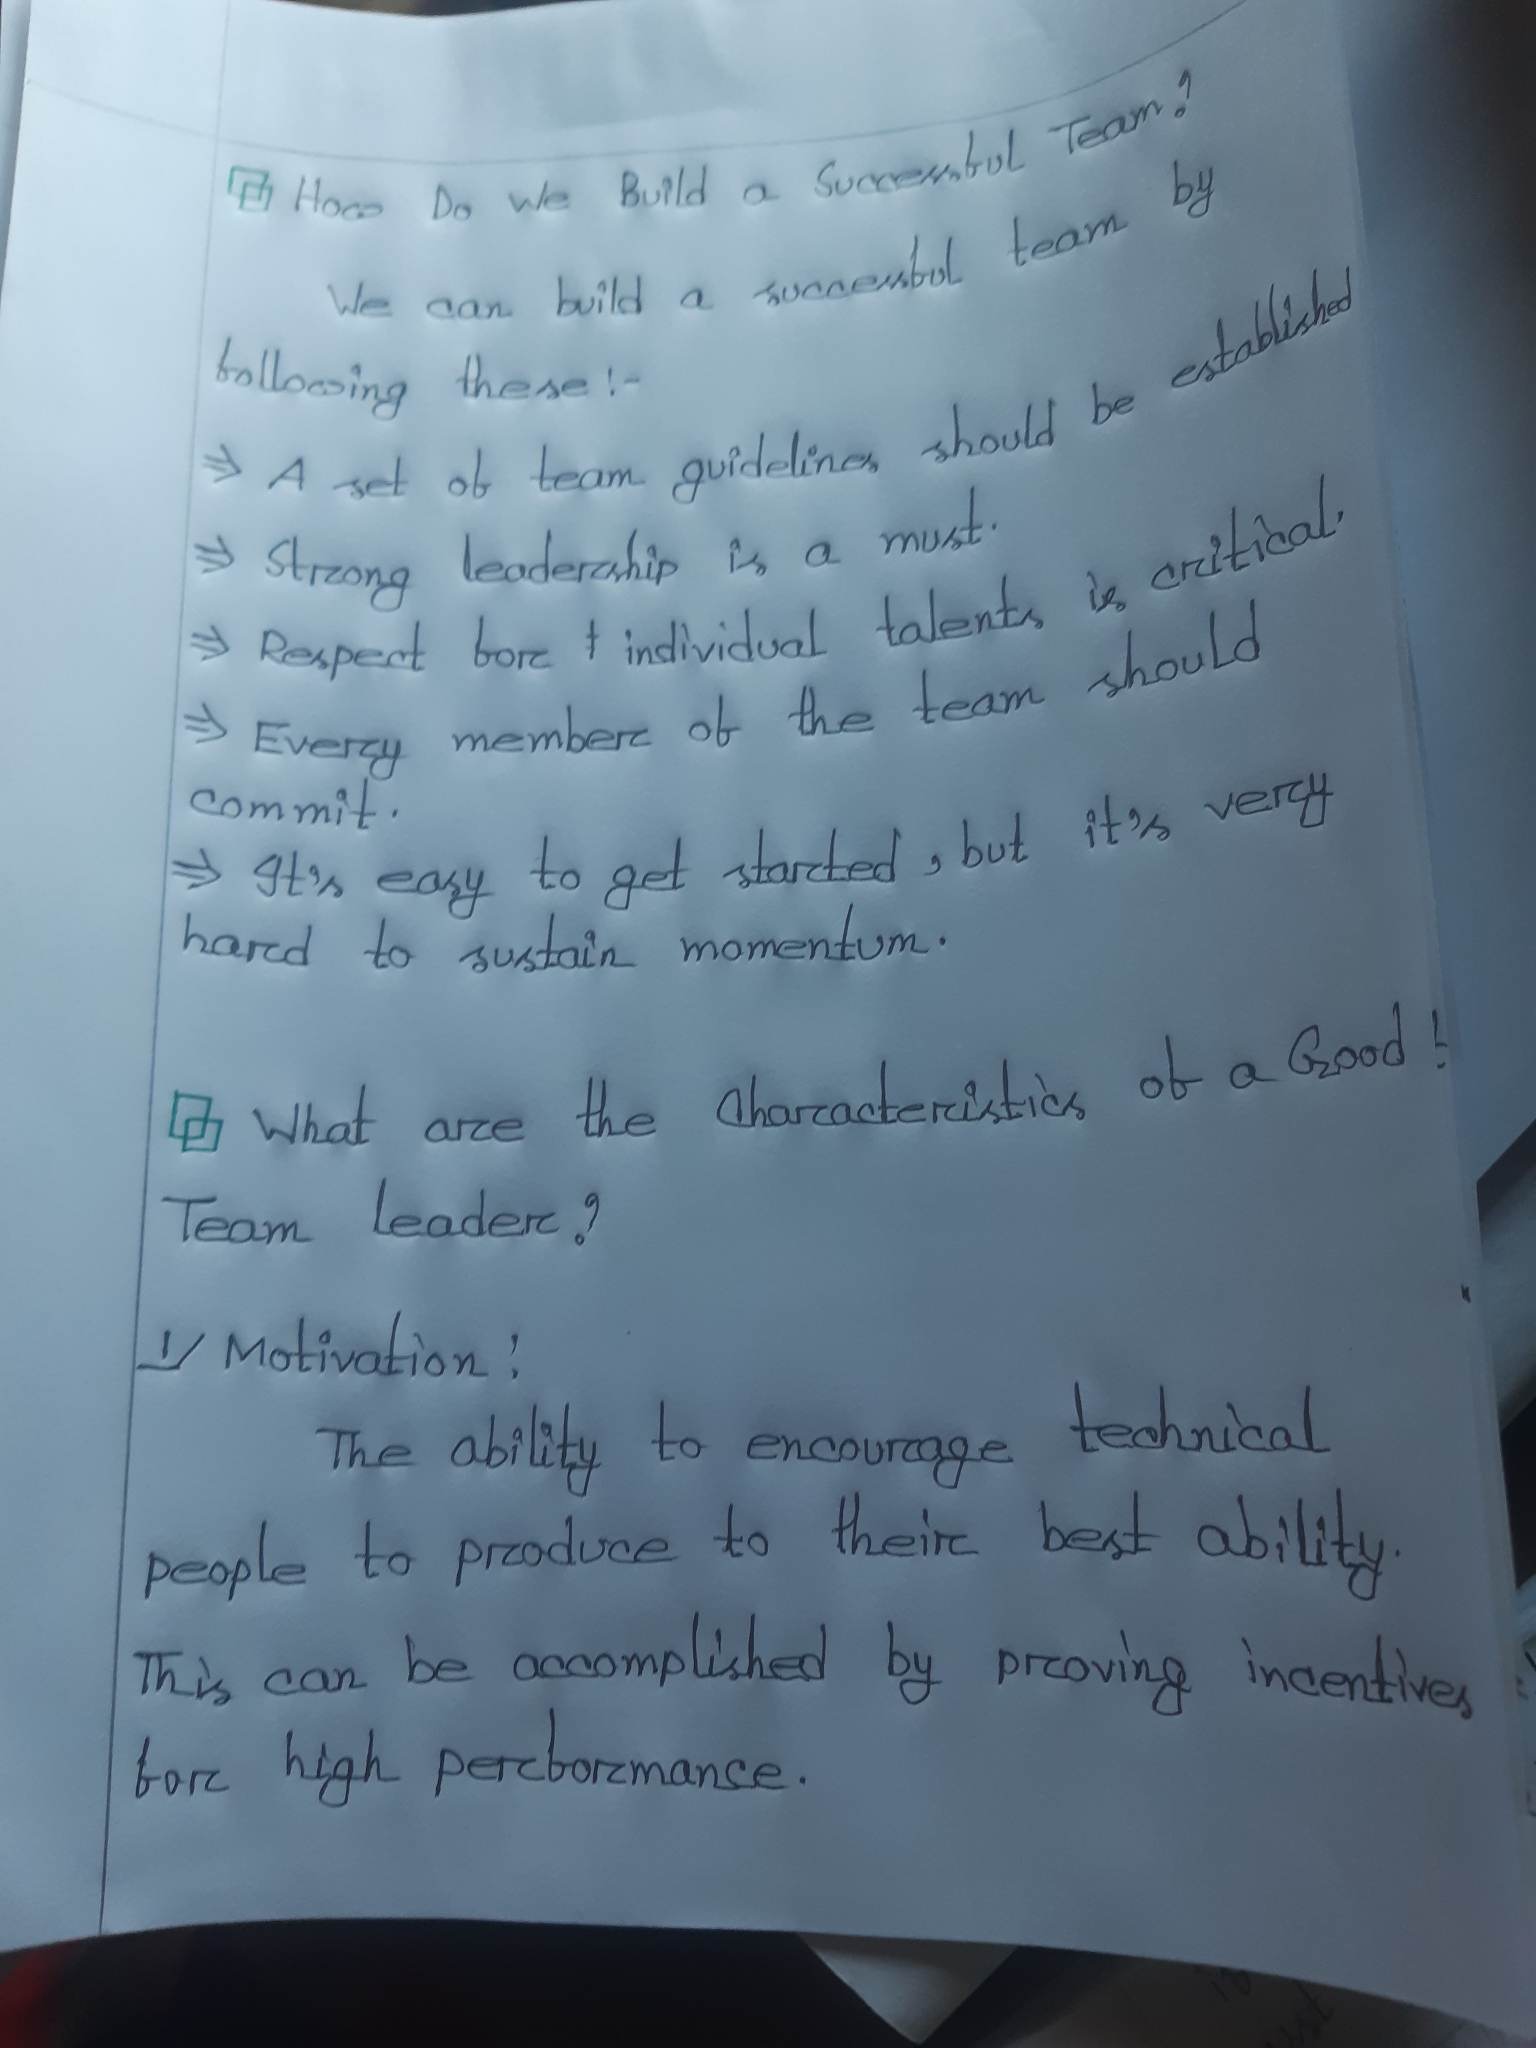 How Do We Build a Successful Team?
We can build a successful team by
following these:-
⇒ A set of team guidelines should be established
⇒ Strong leadership is a must.
⇒ Respect for t individual talents is critical.
⇒ Every member of the team should
commit.
⇒ It's easy to get started, but it's very
hard to sustain momentum.
What are the Characteristics of a Good
Team leader?
1/ Motivation:
The ability to encourage technical
people to produce to their best ability.
This can be accomplished by proving incentives
for high performance.